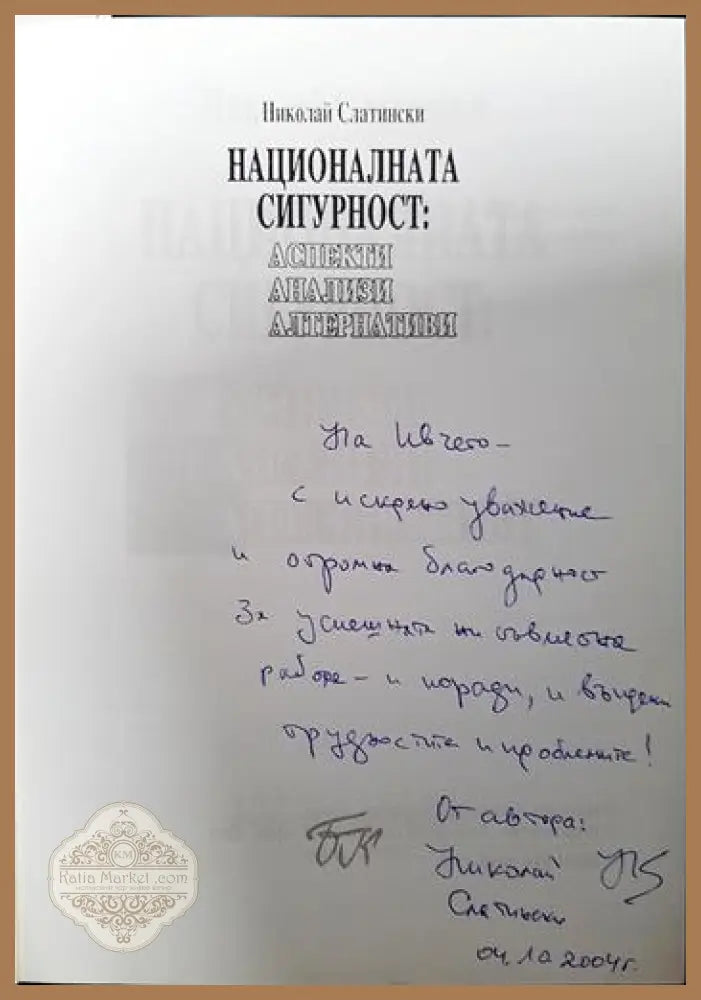 Николай Слатински
НАЦИОНАЛНАТА
СИГУРНОСТ:
АСПЕКТИ
АНАЛИЗИ
АЛТЕРНАТИВИ
На Ивчето –
с искрено уважение
и огромна благодарност
За успешната ни съвместна
работа – и поради, и въпреки
трудностите и проблемите!
От автора:
Николай
Слатински
04.10.2004г.
KM
Katia Market .com